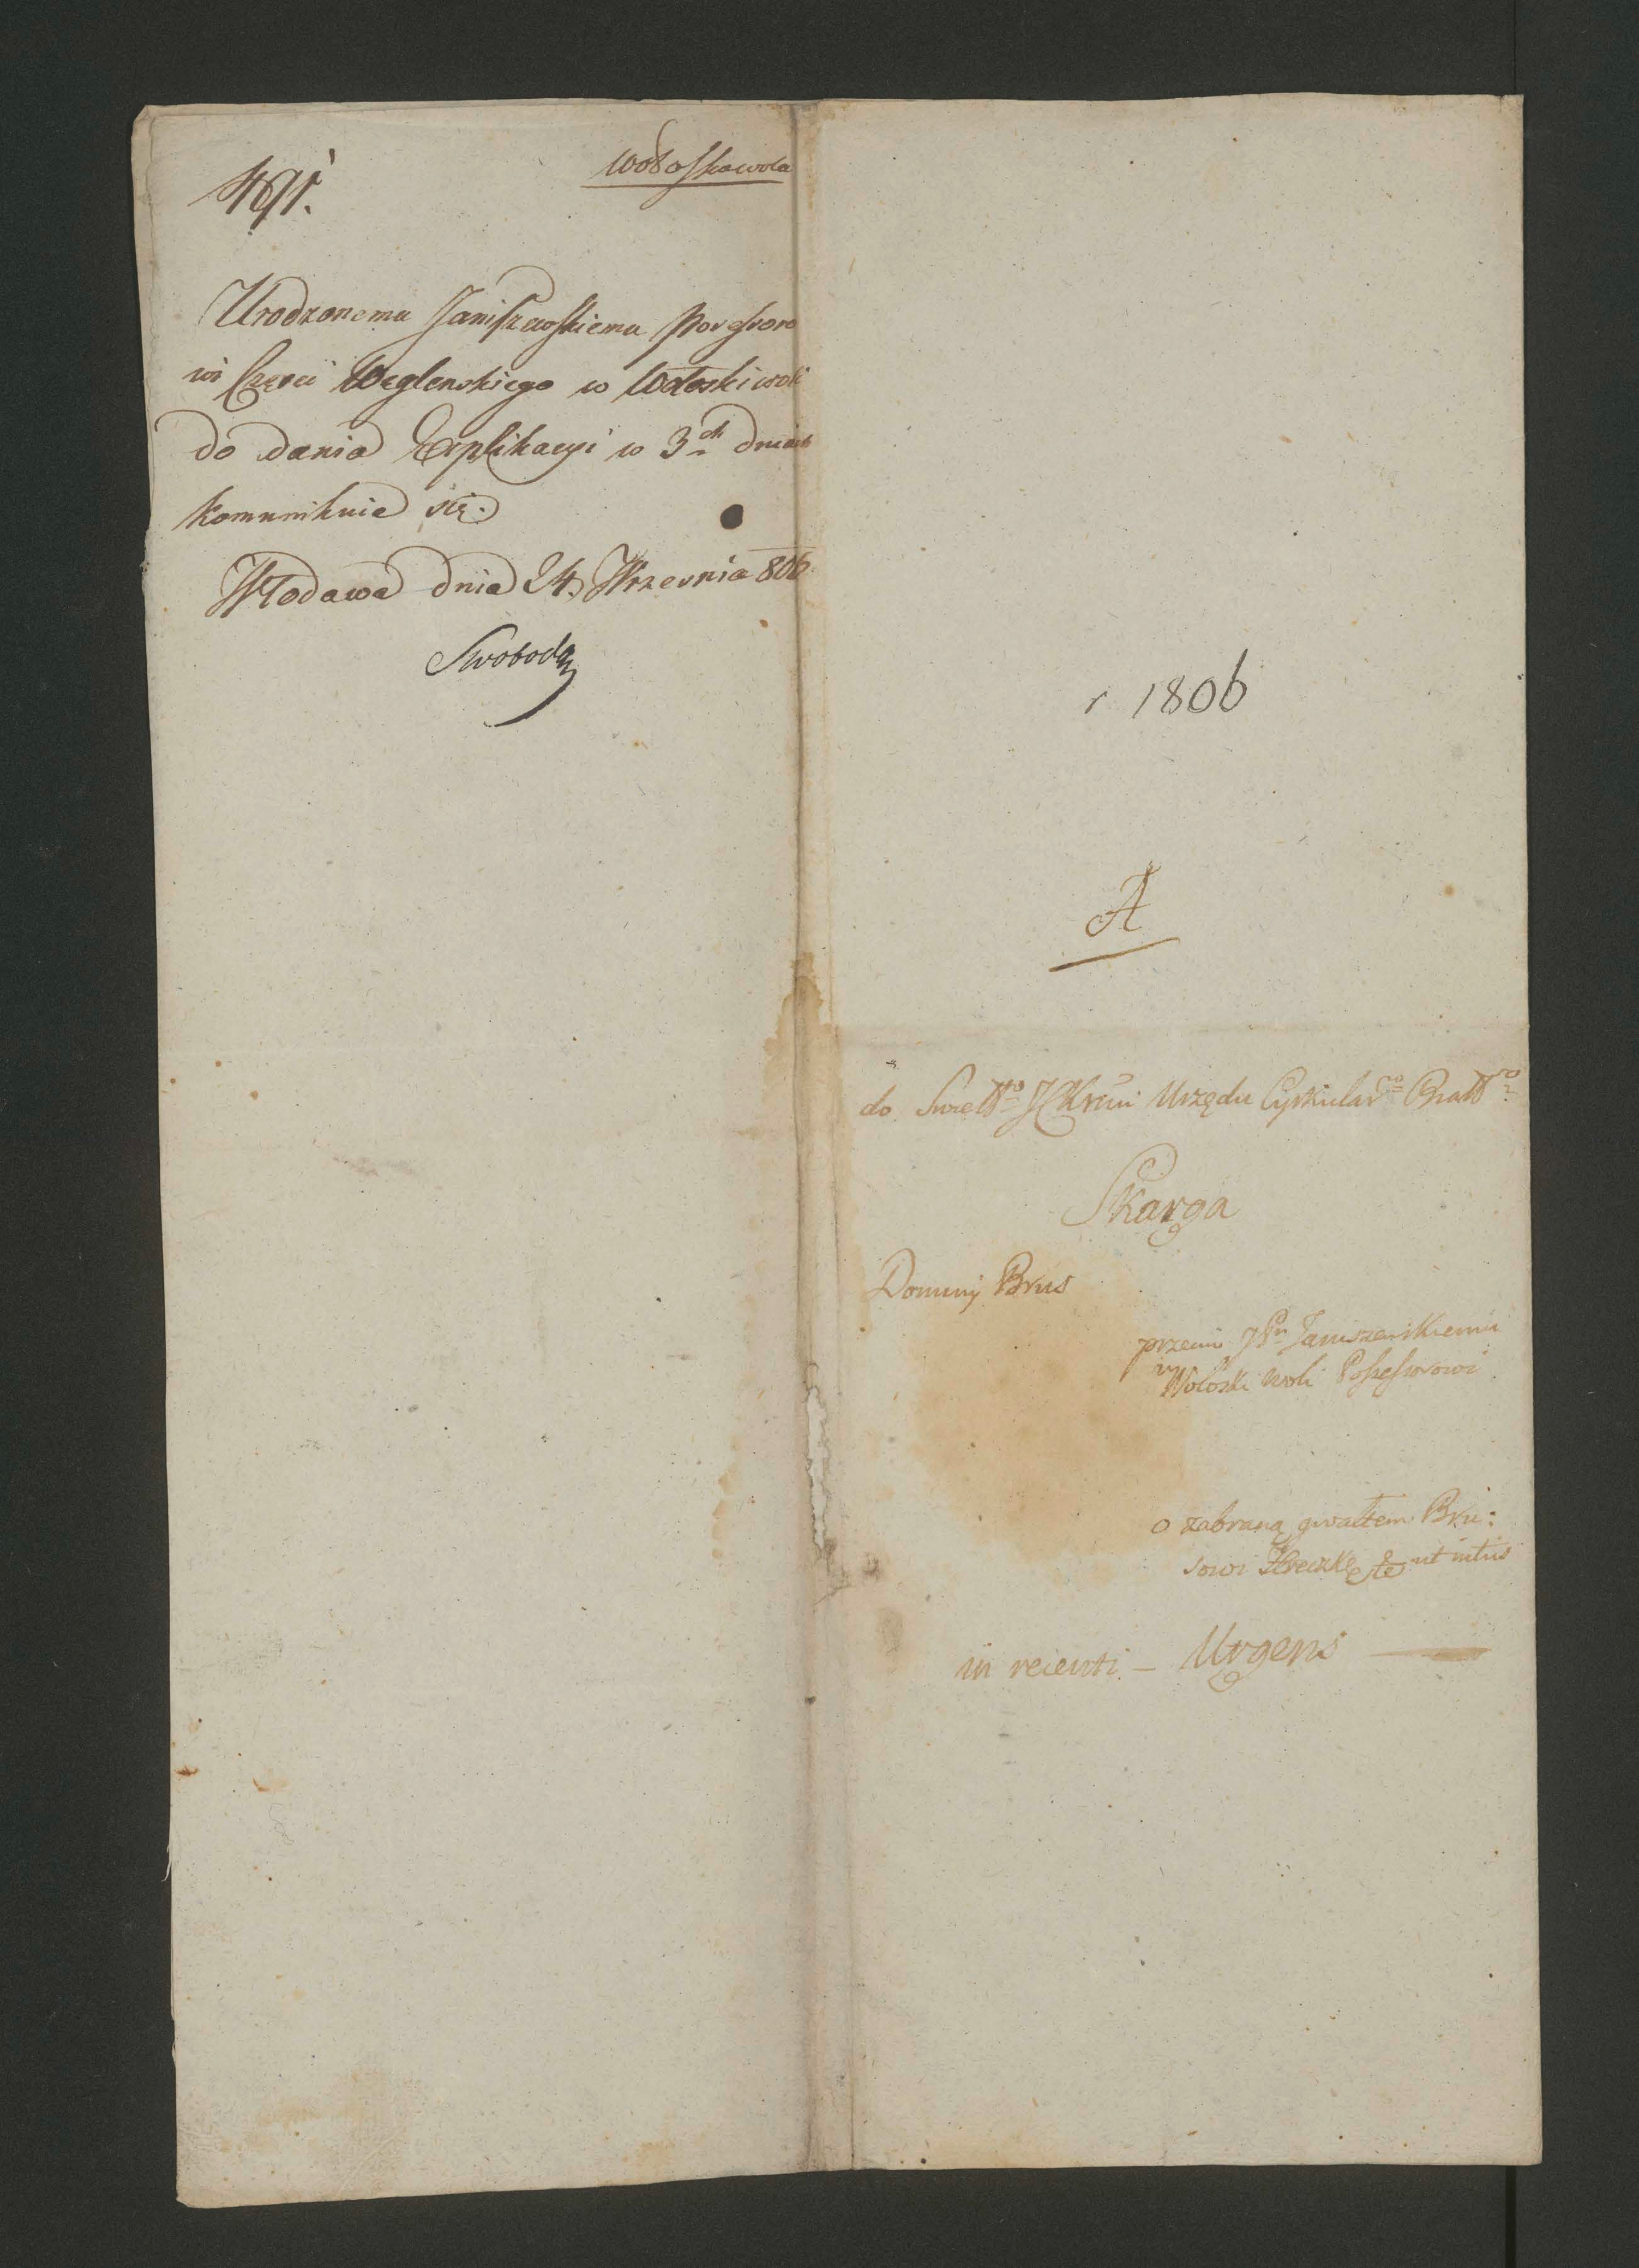 Wołoskawola
491.
Urodzonemu Janiszewskiemu Possessoro
wi Części Węglenskiego w Wołoski woli
do dania Explikacyi w 3ch dniach
kommunikuie się.
Włodawa dnia 24. Wrzesnia 806.
Swoboda
r 1806
A
do Swiettgo JCKrui Urzędu Cyrkularго Bialtgo
Skarga
Dominij Brus
przeciw JPn Janiszewskiemu
w Woloski woli Possessorowi
o zabraną gwałtem Bru:
sowi Hreczkę etc ut intus
in recenti – Urgens